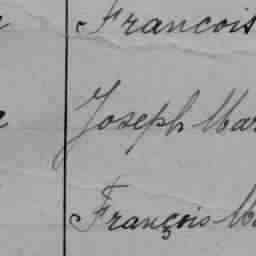 Francois
Joseph Mar
François Ma